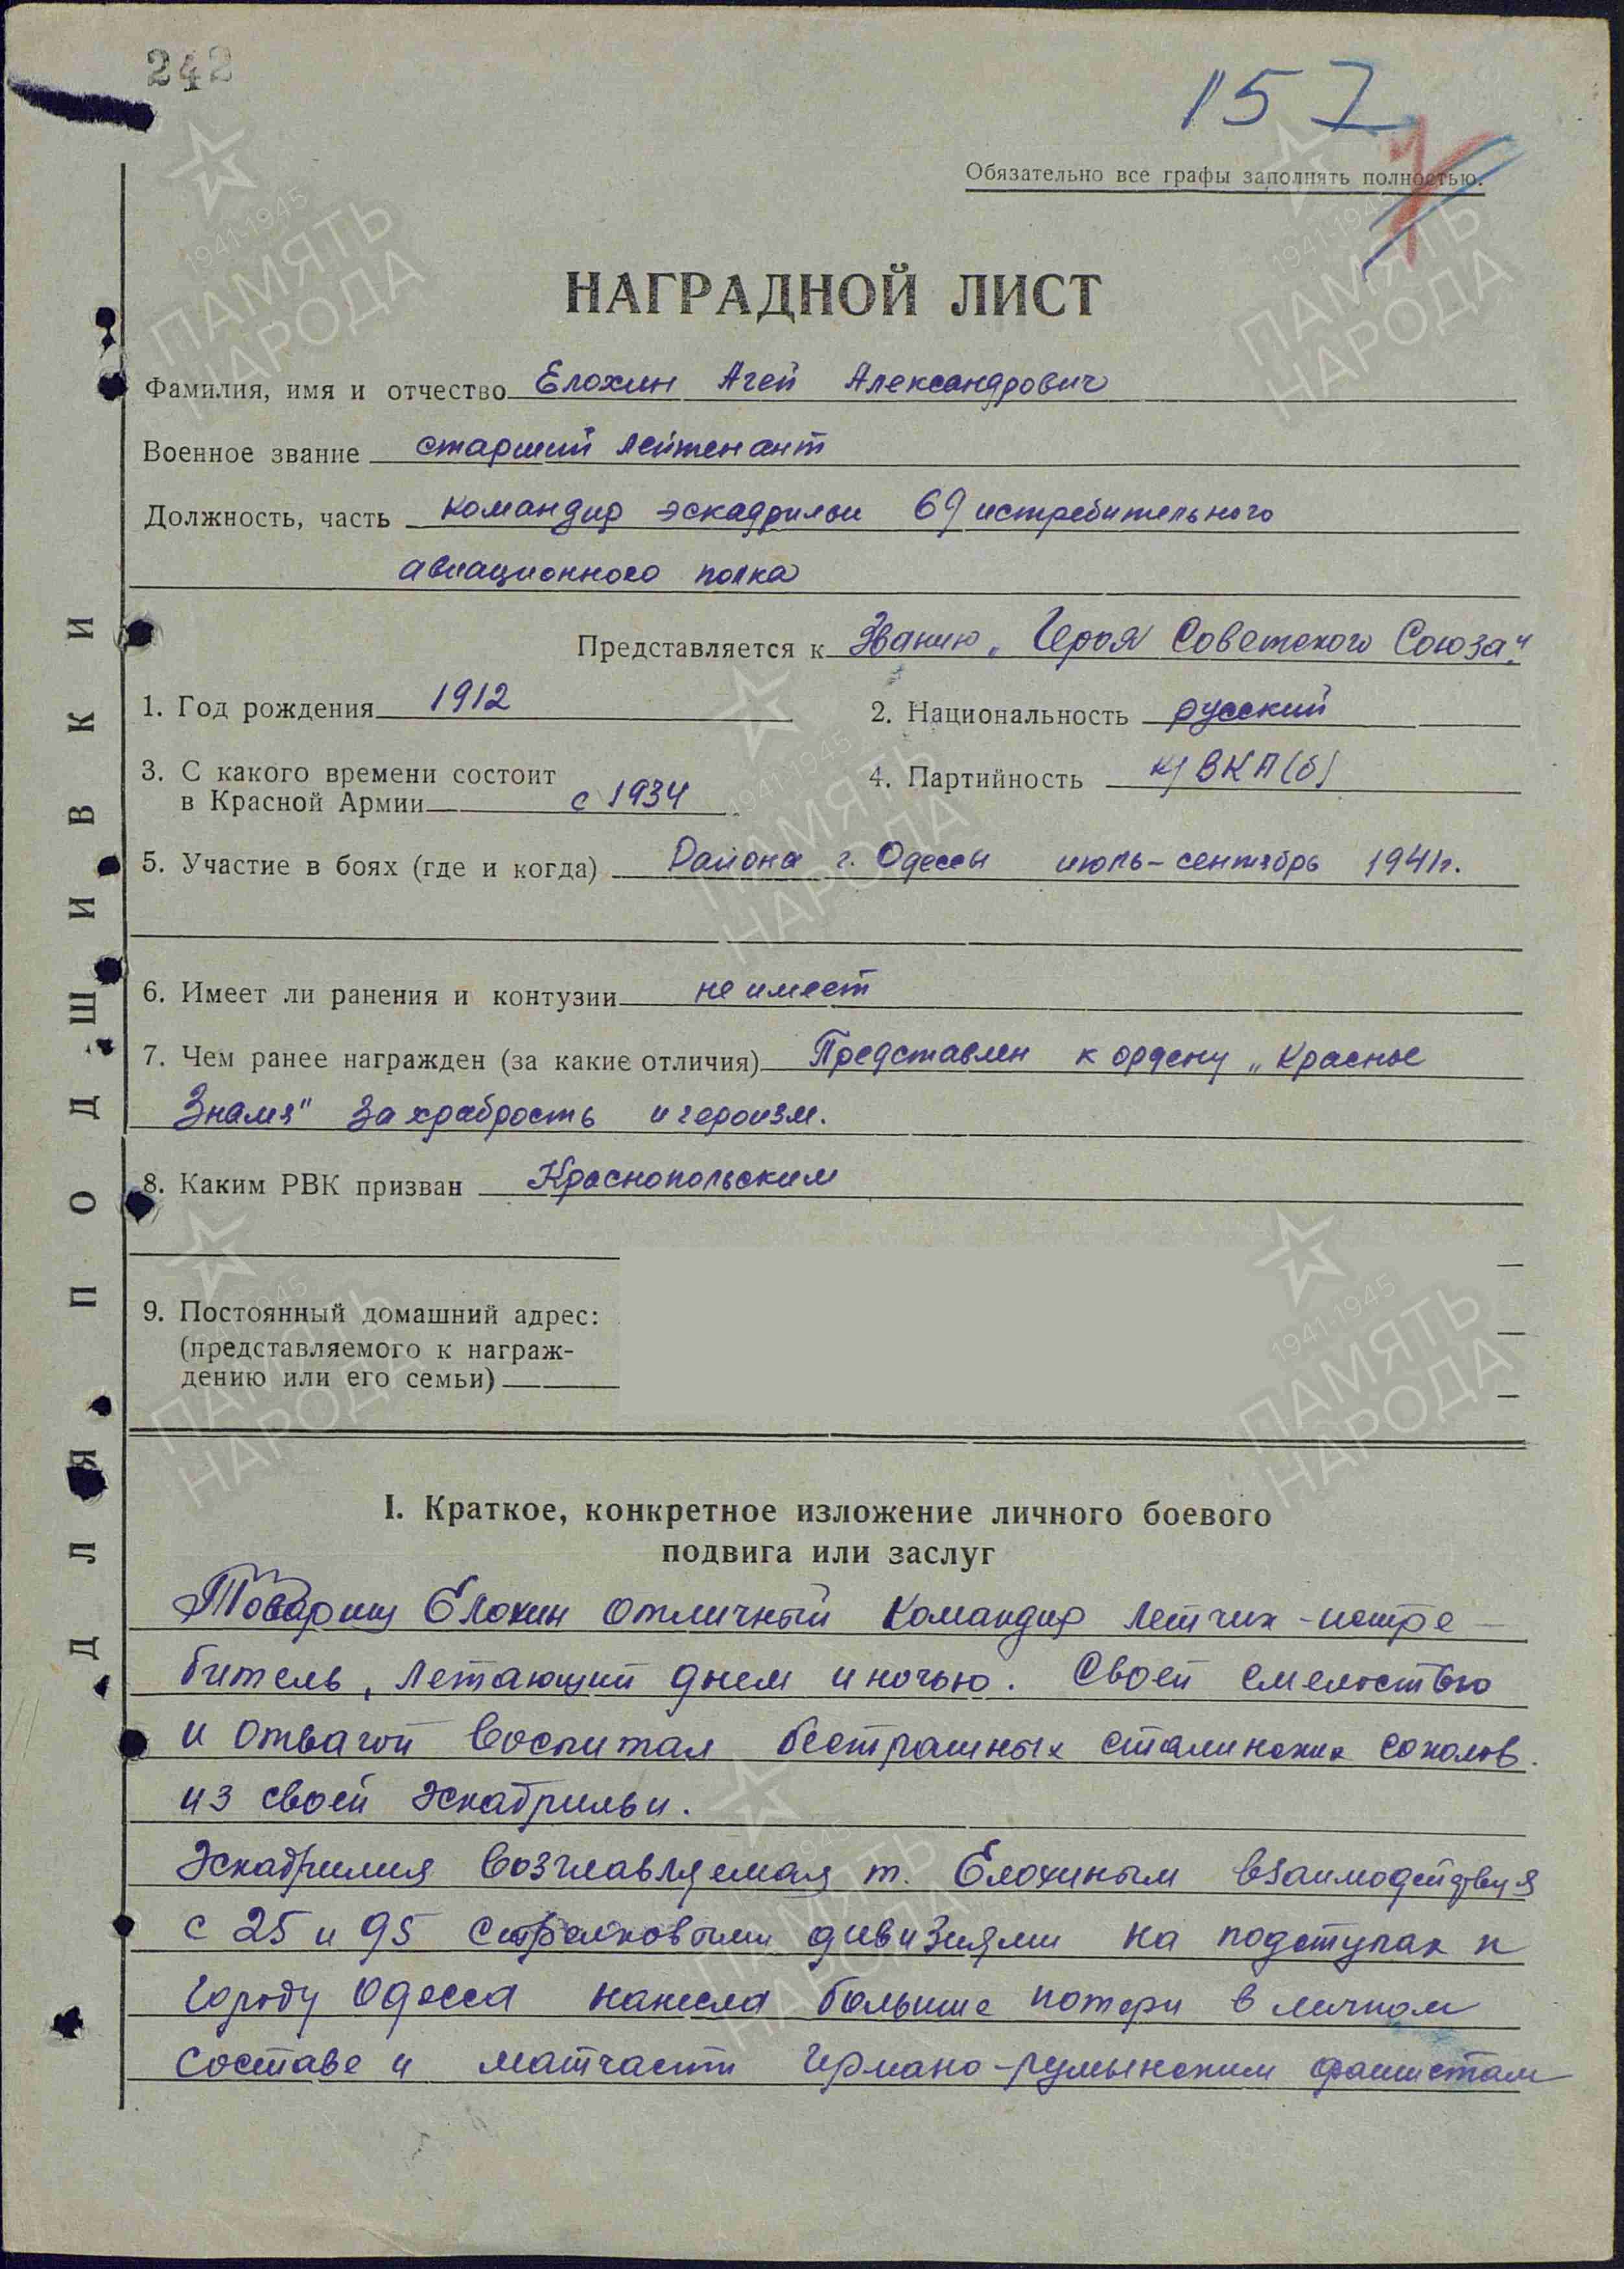 242
157
Обязательно все графы заполнять полностью.
НАГРАДНОЙ ЛИСТ
Фамилия, имя и отчество Елохин Агей Александрович
Военное звание старший лейтенант
Должность, часть командир эскадрильи 69 истребительного
авиационного полка
Представляется к Званию „Героя Советского Союза"
1. Год рождения 1912
2. Национальность русский
3. С какого времени состоит
в Красной Армии с 1934
4. Партийность к/ВКП(б)
5. Участие в боях (где и когда) Района г. Одессы июль-сентябрь 1941г.
6. Имеет ли ранения и контузии не имеет
7. Чем ранее награжден (за какие отличия) Представлен к ордену „Красное
Знамя" за храбрость и героизм.
8. Каким РВК призван Краснопольским
9. Постоянный домашний адрес:
(представляемого к награж-
дению или его семьи)
I. Краткое, конкретное изложение личного боевого
подвига или заслуг
Товарищ Елохин отличный командир летчик-истре-
битель, летающий днем и ночью. Своей смелостью
и отвагой воспитал бестрашных сталинских соколов
из своей эскадрильи.
Эскадрилия возглавляемая т. Елохиным взаимодействуя
с 25 и 95 стрелковыми дивизиями на подступах к
городу Одесса нанесла большие потери в личном
составе и матчасти германо-румынским фашистам
ДЛЯ ПОДШИВКИ
1941-1945
ПАМЯТЬ
НАРОДА
1941-1945
ПАМЯТЬ
НАРОДА
1941-1945
ПАМЯТЬ
НАРОДА
1941-1945
ПАМЯТЬ
НАРОДА
1941-1945
ПАМЯТЬ
НАРОДА
1941-1945
ПАМЯТЬ
НАРОДА